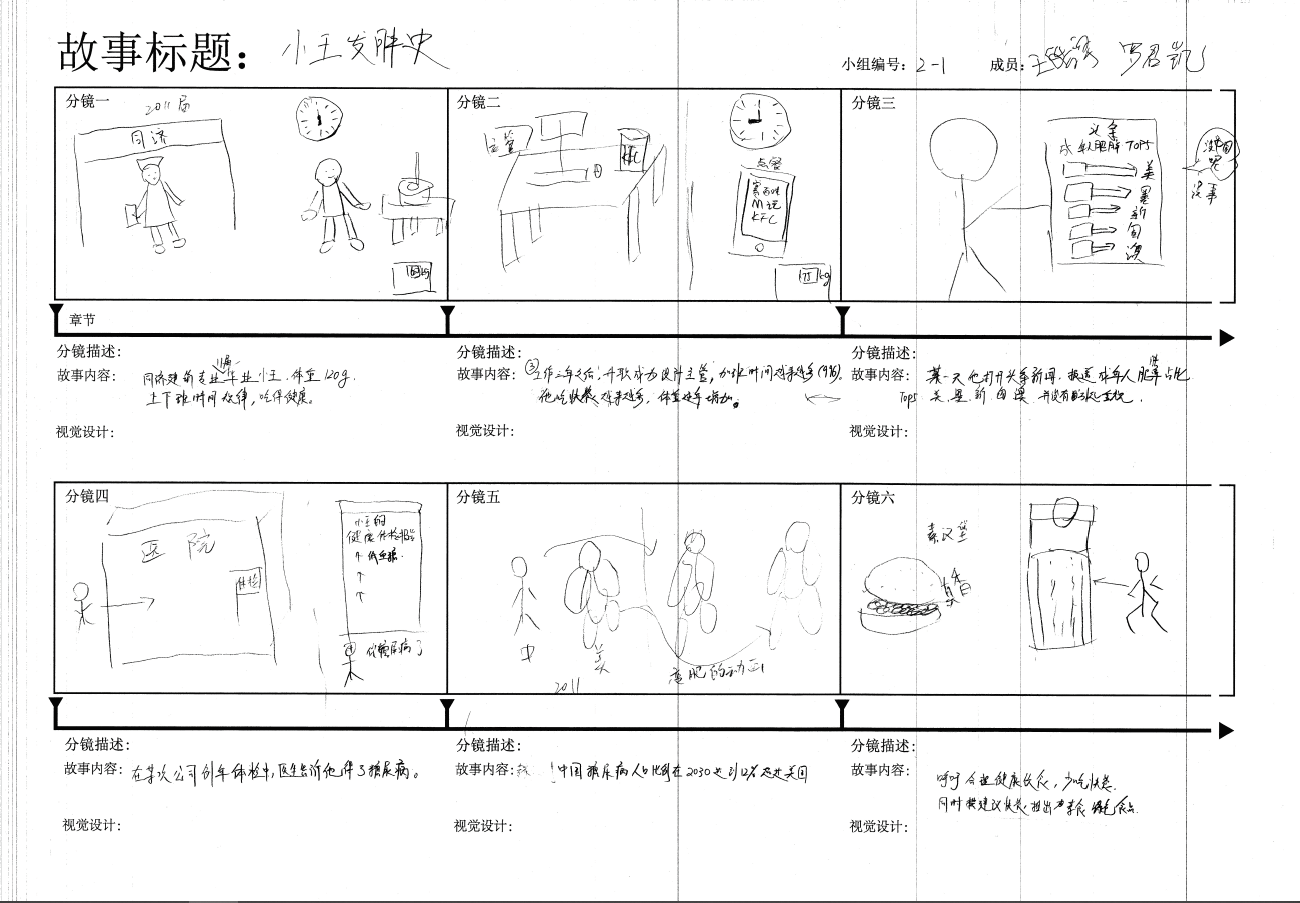 故事标题: 小王发胖史
小组编号: 2-1 成员: 罗君凯
分镜一
2011届
同济
分镜二
主管
KFC
点餐
赛百味
M记
KFC
75kg
分镜三
头条
成年人肥胖 TOP5
美
墨
新
匈
澳
没中国呢
没事
章节
分镜描述:
故事内容: 同济建筑专业11届毕业小王,体重120g.
上下班时间规律,吃得健康。
视觉设计:
分镜描述:
故事内容: ③工作三年之后,升职成为设计主管,加班时间越来越多(996)。
他吃快餐越来越多,体重逐年增加。
视觉设计:
分镜描述:
故事内容: 某一天他打开头条新闻,报道成年人肥胖占比
TOP5 美、墨、新、匈、澳
视觉设计:
分镜四
医院
体检
小王的
健康体检报告
↑ 低血糖.
↑
↑
得糖尿病了
分镜五
中
美
2011
分镜六
素汉堡
分镜描述:
故事内容: 在某次公司例年体检中,医生告诉他得了糖尿病。
视觉设计:
分镜描述:
故事内容: 中国糖尿病人口比例在2030达到12% 超过美国
视觉设计:
分镜描述:
故事内容: 呼吁合理健康饮食,少吃快餐.
同时提建议快餐推出素食 健康食品.
视觉设计: